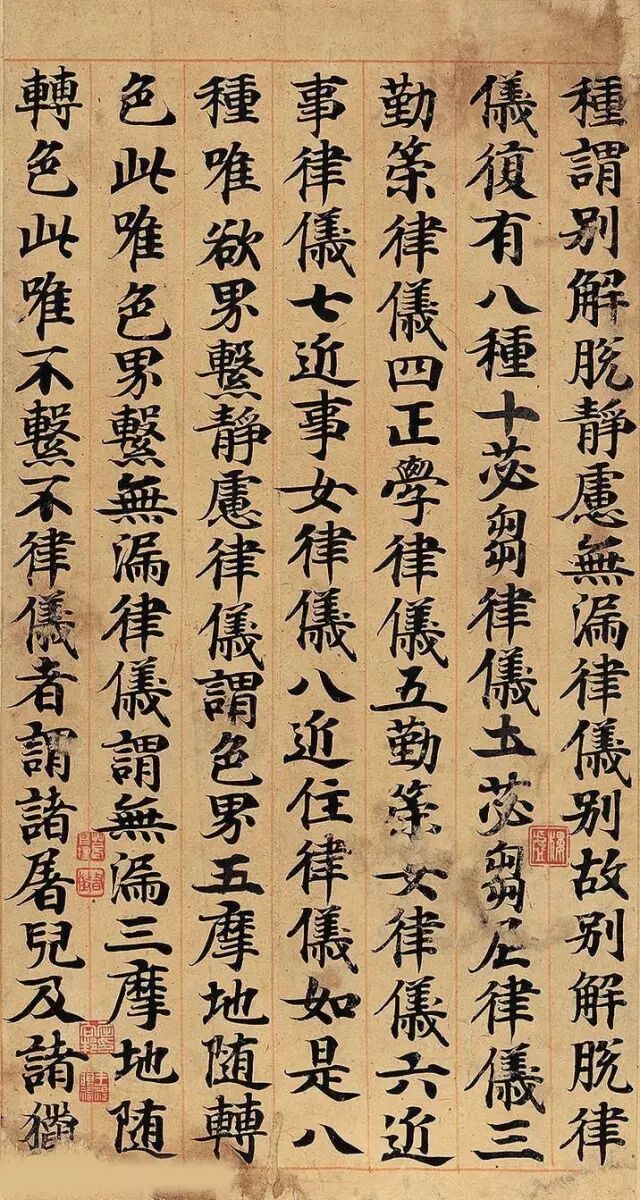 種謂别解脱靜慮無漏律儀别故别解脱律
儀復有八種十苾芻律儀土苾芻尼律儀三
勤策律儀四正學律儀五勤策女律儀六近
事律儀七近事女律儀八近住律儀如是八
種唯欲界繫靜慮律儀謂色界五摩地随轉
色此唯色界繫無漏律儀謂無漏三摩地随
轉色此唯不繫不律儀者謂諸屠兒及諸獵